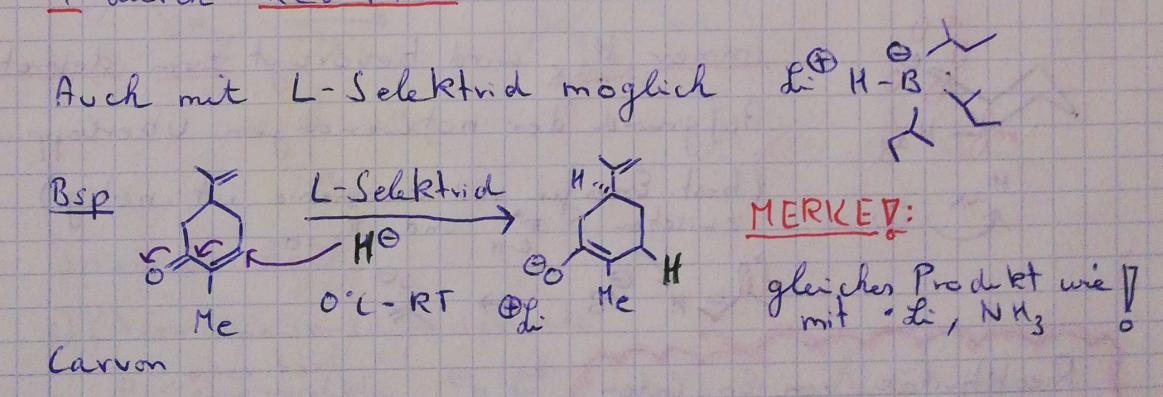 Auch mit L-Selektrid möglich Li⊕ H-B⊖
Bsp
L-Selektrid
H⊖
0°C - RT
O
Me
Carvon
H
⊖O
⊕Li
Me
H
MERKE!:
gleiches Produkt wie
mit · Li, NH₃ !